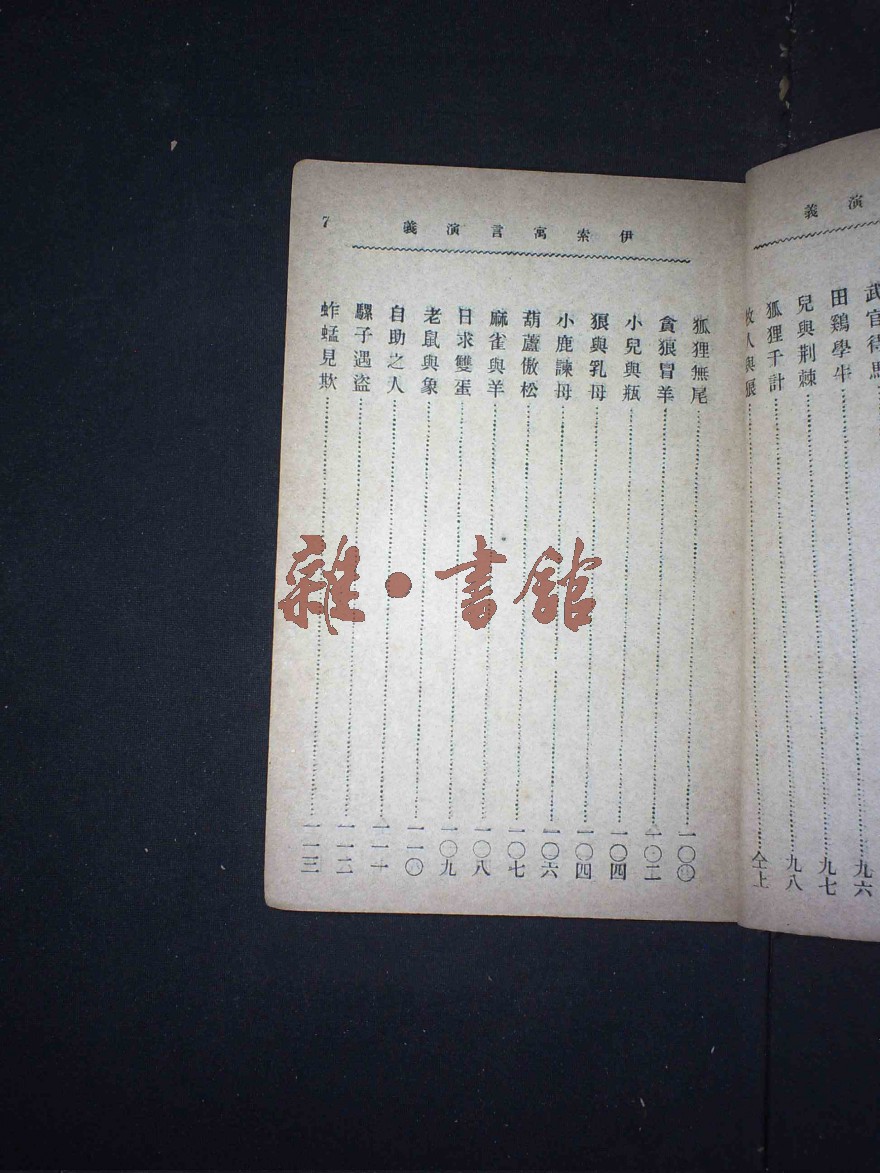 演義
武官得馬
田鷄學牛……九六
兒與荆棘……九七
狐狸千計……九八
牧人與狼……仝上
伊索寓言演義
7
狐狸無尾……一〇〇
貪狼冒羊……一〇二
小兒與瓶……一〇四
狠與乳母……一〇四
小鹿諫母……一〇六
葫蘆傲松……一〇七
麻雀與羊……一〇八
日求雙蛋……一〇九
老鼠與象……一一〇
自助之人……一一一
騾子遇盜……一一二
蚱蜢見欺……一一三
雜·書館